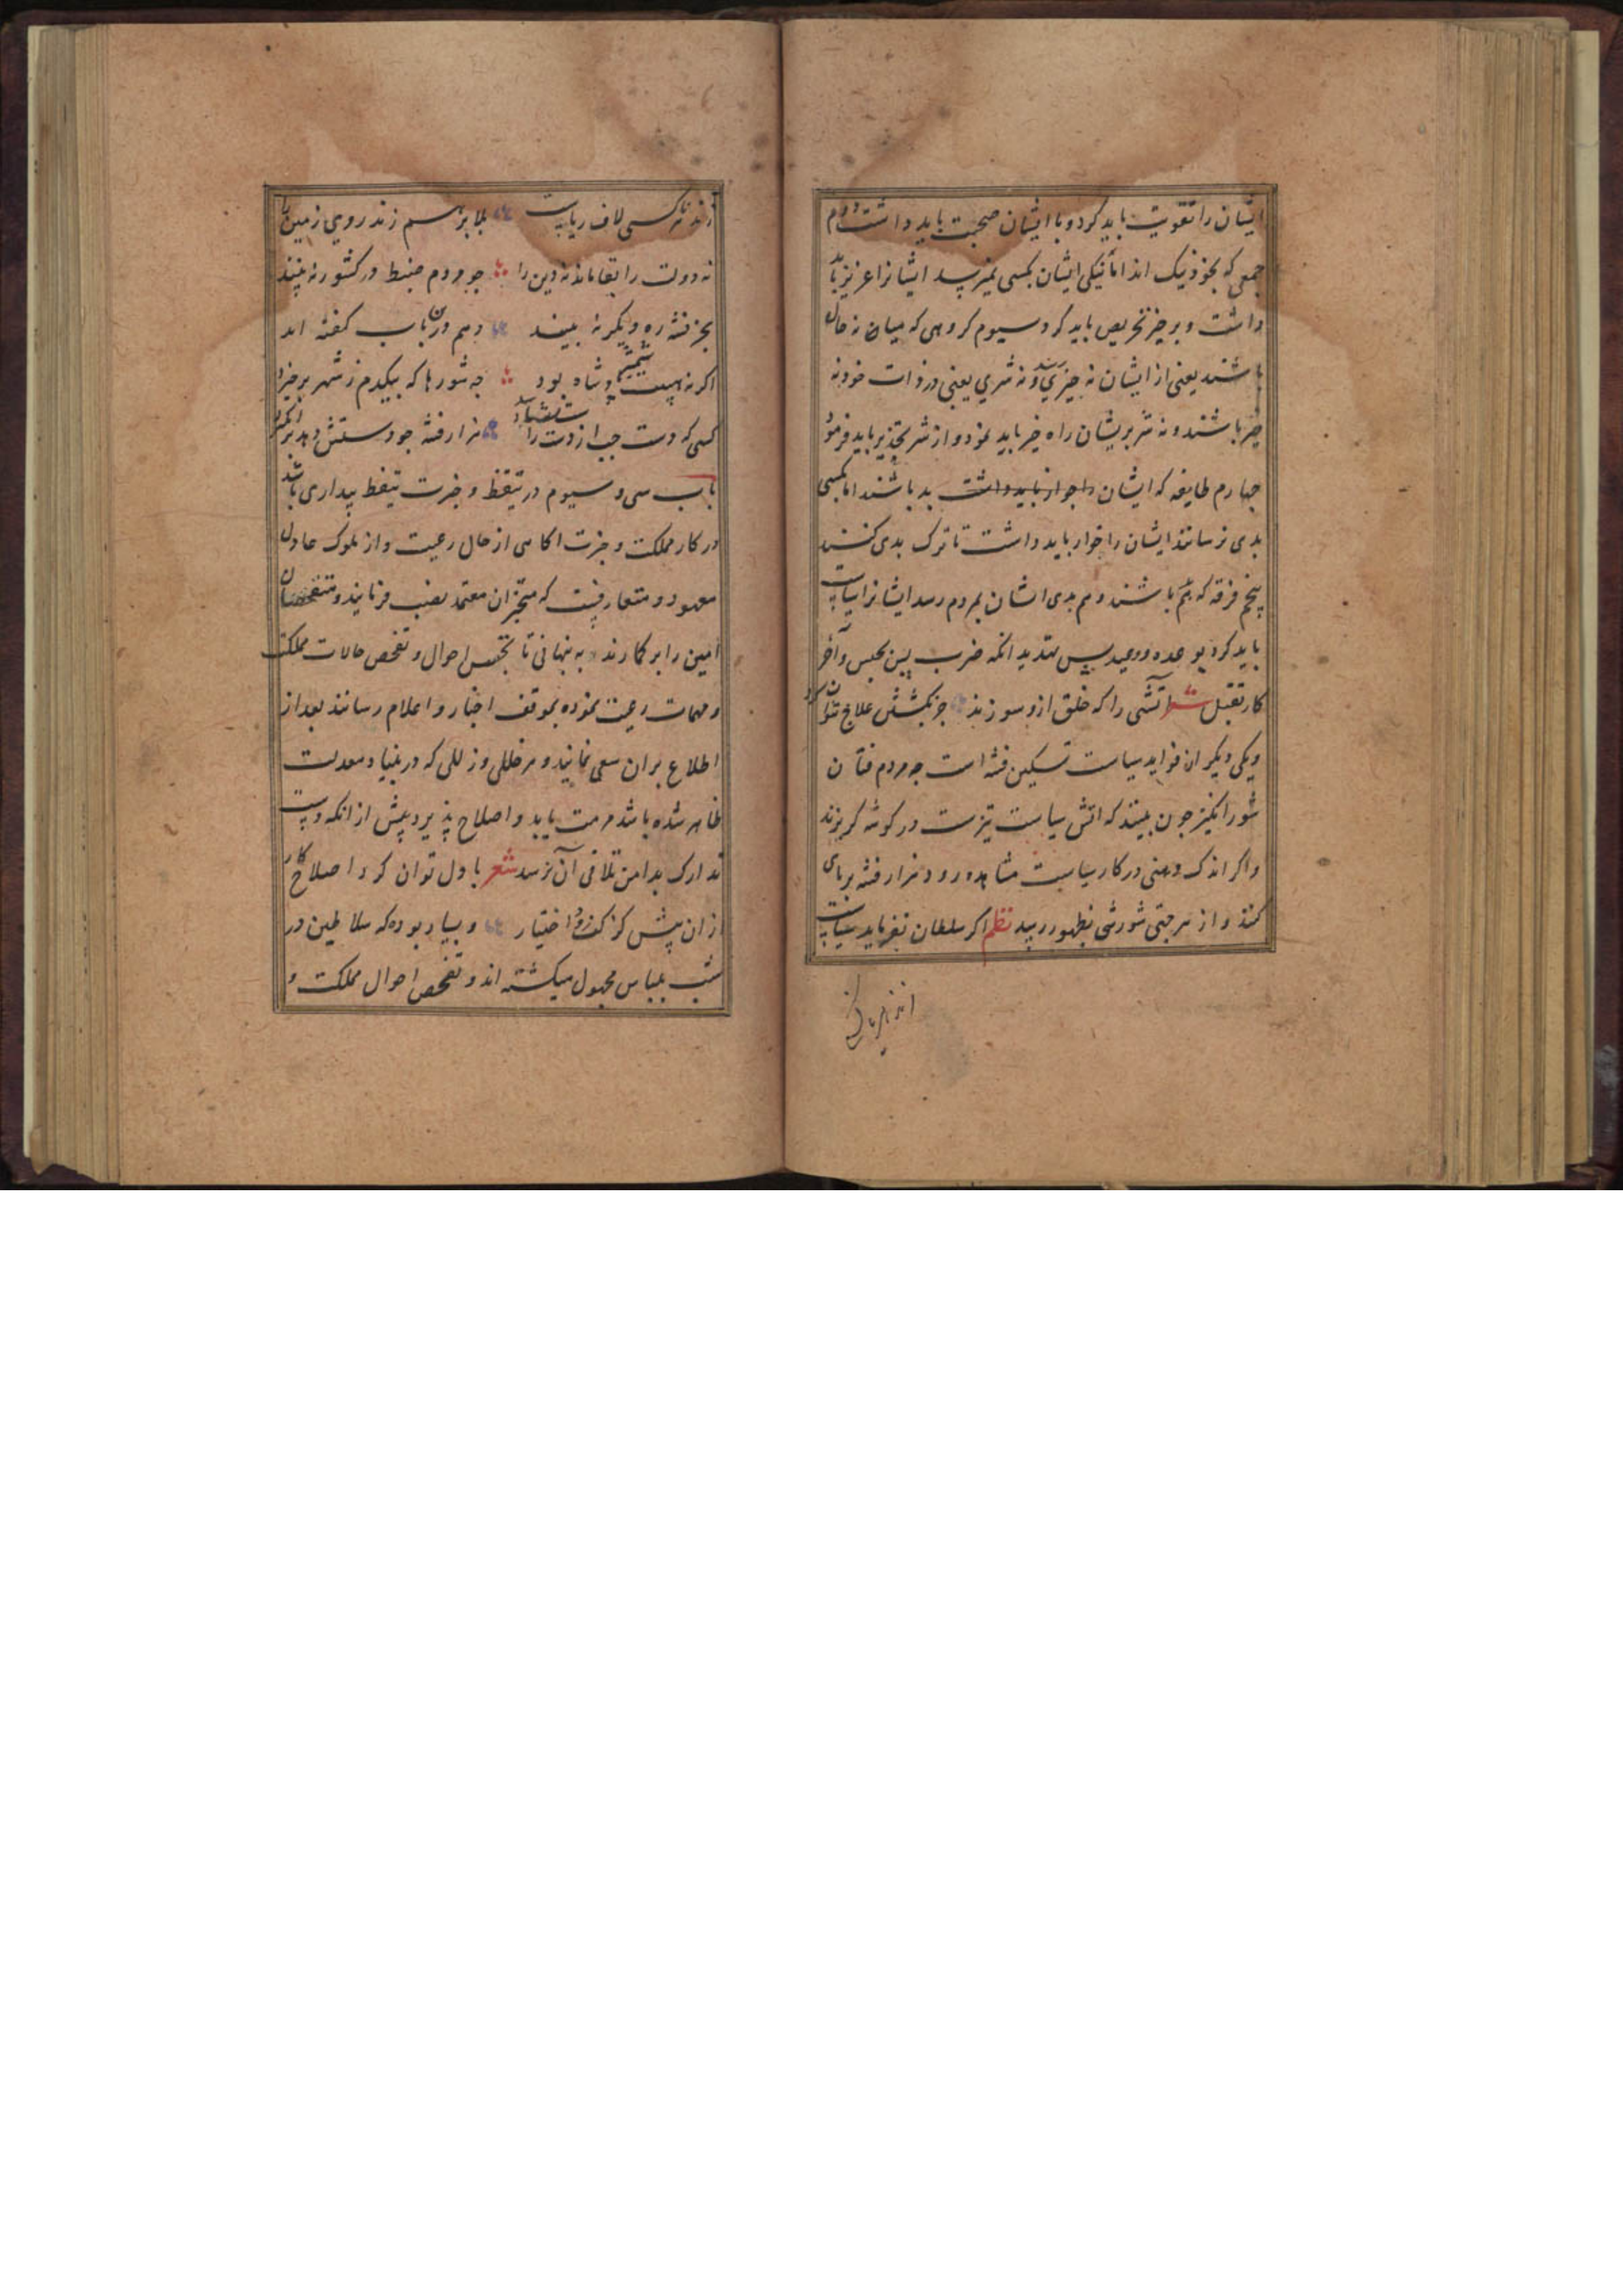 ایشان را تقویت باید کرد و با ایشان صحبت باید داشت دوم
جمعی که بخود نیک اند اما نیکی ایشان بکسی نمیرسد ایشانرا عزیز باید
داشت و بر خیر تحریص باید کرد سیوم کروهی که میان نه حال
باشند یعنی از ایشان نه خیری رسد و نه شری یعنی در ذات خود نه
خیر باشند و نه شریر ایشان راه خیر باید نمود و از شر تحذیر باید فرمود
چهارم طایفه که ایشان را خوار باید داشت بد باشند اما بکسی
بدی نرسانند ایشان را خوار باید داشت تا ترک بدی کنند
پنجم فرقه که هم باشند و هم بدی ایشان بمردم رسد ایشانرا سیاست
باید کرد بوعده و وعید پس تهدید انکه ضرب پس بحبس و آخر
کار بقتل شعر آتشی را که خلق ازو سوزند جز بکشتن علاج نتوان کرد
و یکی دیکر از فواید سیاست تسکین فتنه است چه مردم فتان
شورانکیز چون بینند که اتش سیاست تیزست در کوشه کریزند
و اکر اندک وهنی در کار سیاست مشاهده رود هزار فتنه بر پای
کنند و از هر جهتی شورشی بظهور رسد نظم اکر سلطان نفرماید سیاست
زند هر ناکسی لاف ریاست بلا بر هم زند روی زمین را
نه دولت را بقا ماند نه دین را چو مردم ضبط در کشور نه بینند
بجز فتنه ره دیکر نه بینند و هم درین باب کفته اند
اکر نه هیبت شمشیر پادشاه بود چه شورها که بیکدم ز شهر برخیزد
کسی که دست چپ از دست راست نشناسد هزار فتنه چو دستش دهد برانکیزد
باب سی و سیوم در تیقظ و خبرت تیقظ بیداری باشد
در کار مملکت و خبرت اکاهی از حال رعیت و از ملوک عادل
معهود و متعارفست که مخبران معتمد نصب فرمایند و متفحصان
امین را بر کمارند به پنهانی تا تجسس احوال و تفحص حالات مملکت
و مهمات رعیت نموده بموقف اخبار و اعلام رسانند بعد از
اطلاع بران سعی نمایند و هر خللی و زللی که در بنیاد معدلت
ظاهر شده باشد مرمت یابد و اصلاح پذیرد پیش از انکه دست
تدارک بدامن تلافی آن نرسد شعر با دل توان کرد اصلاح کار
ازان پیش کز کف رود اختیار و بسیار بوده که سلاطین در
شب بلباس مجهول میکشته اند و تفحص احوال مملکت و